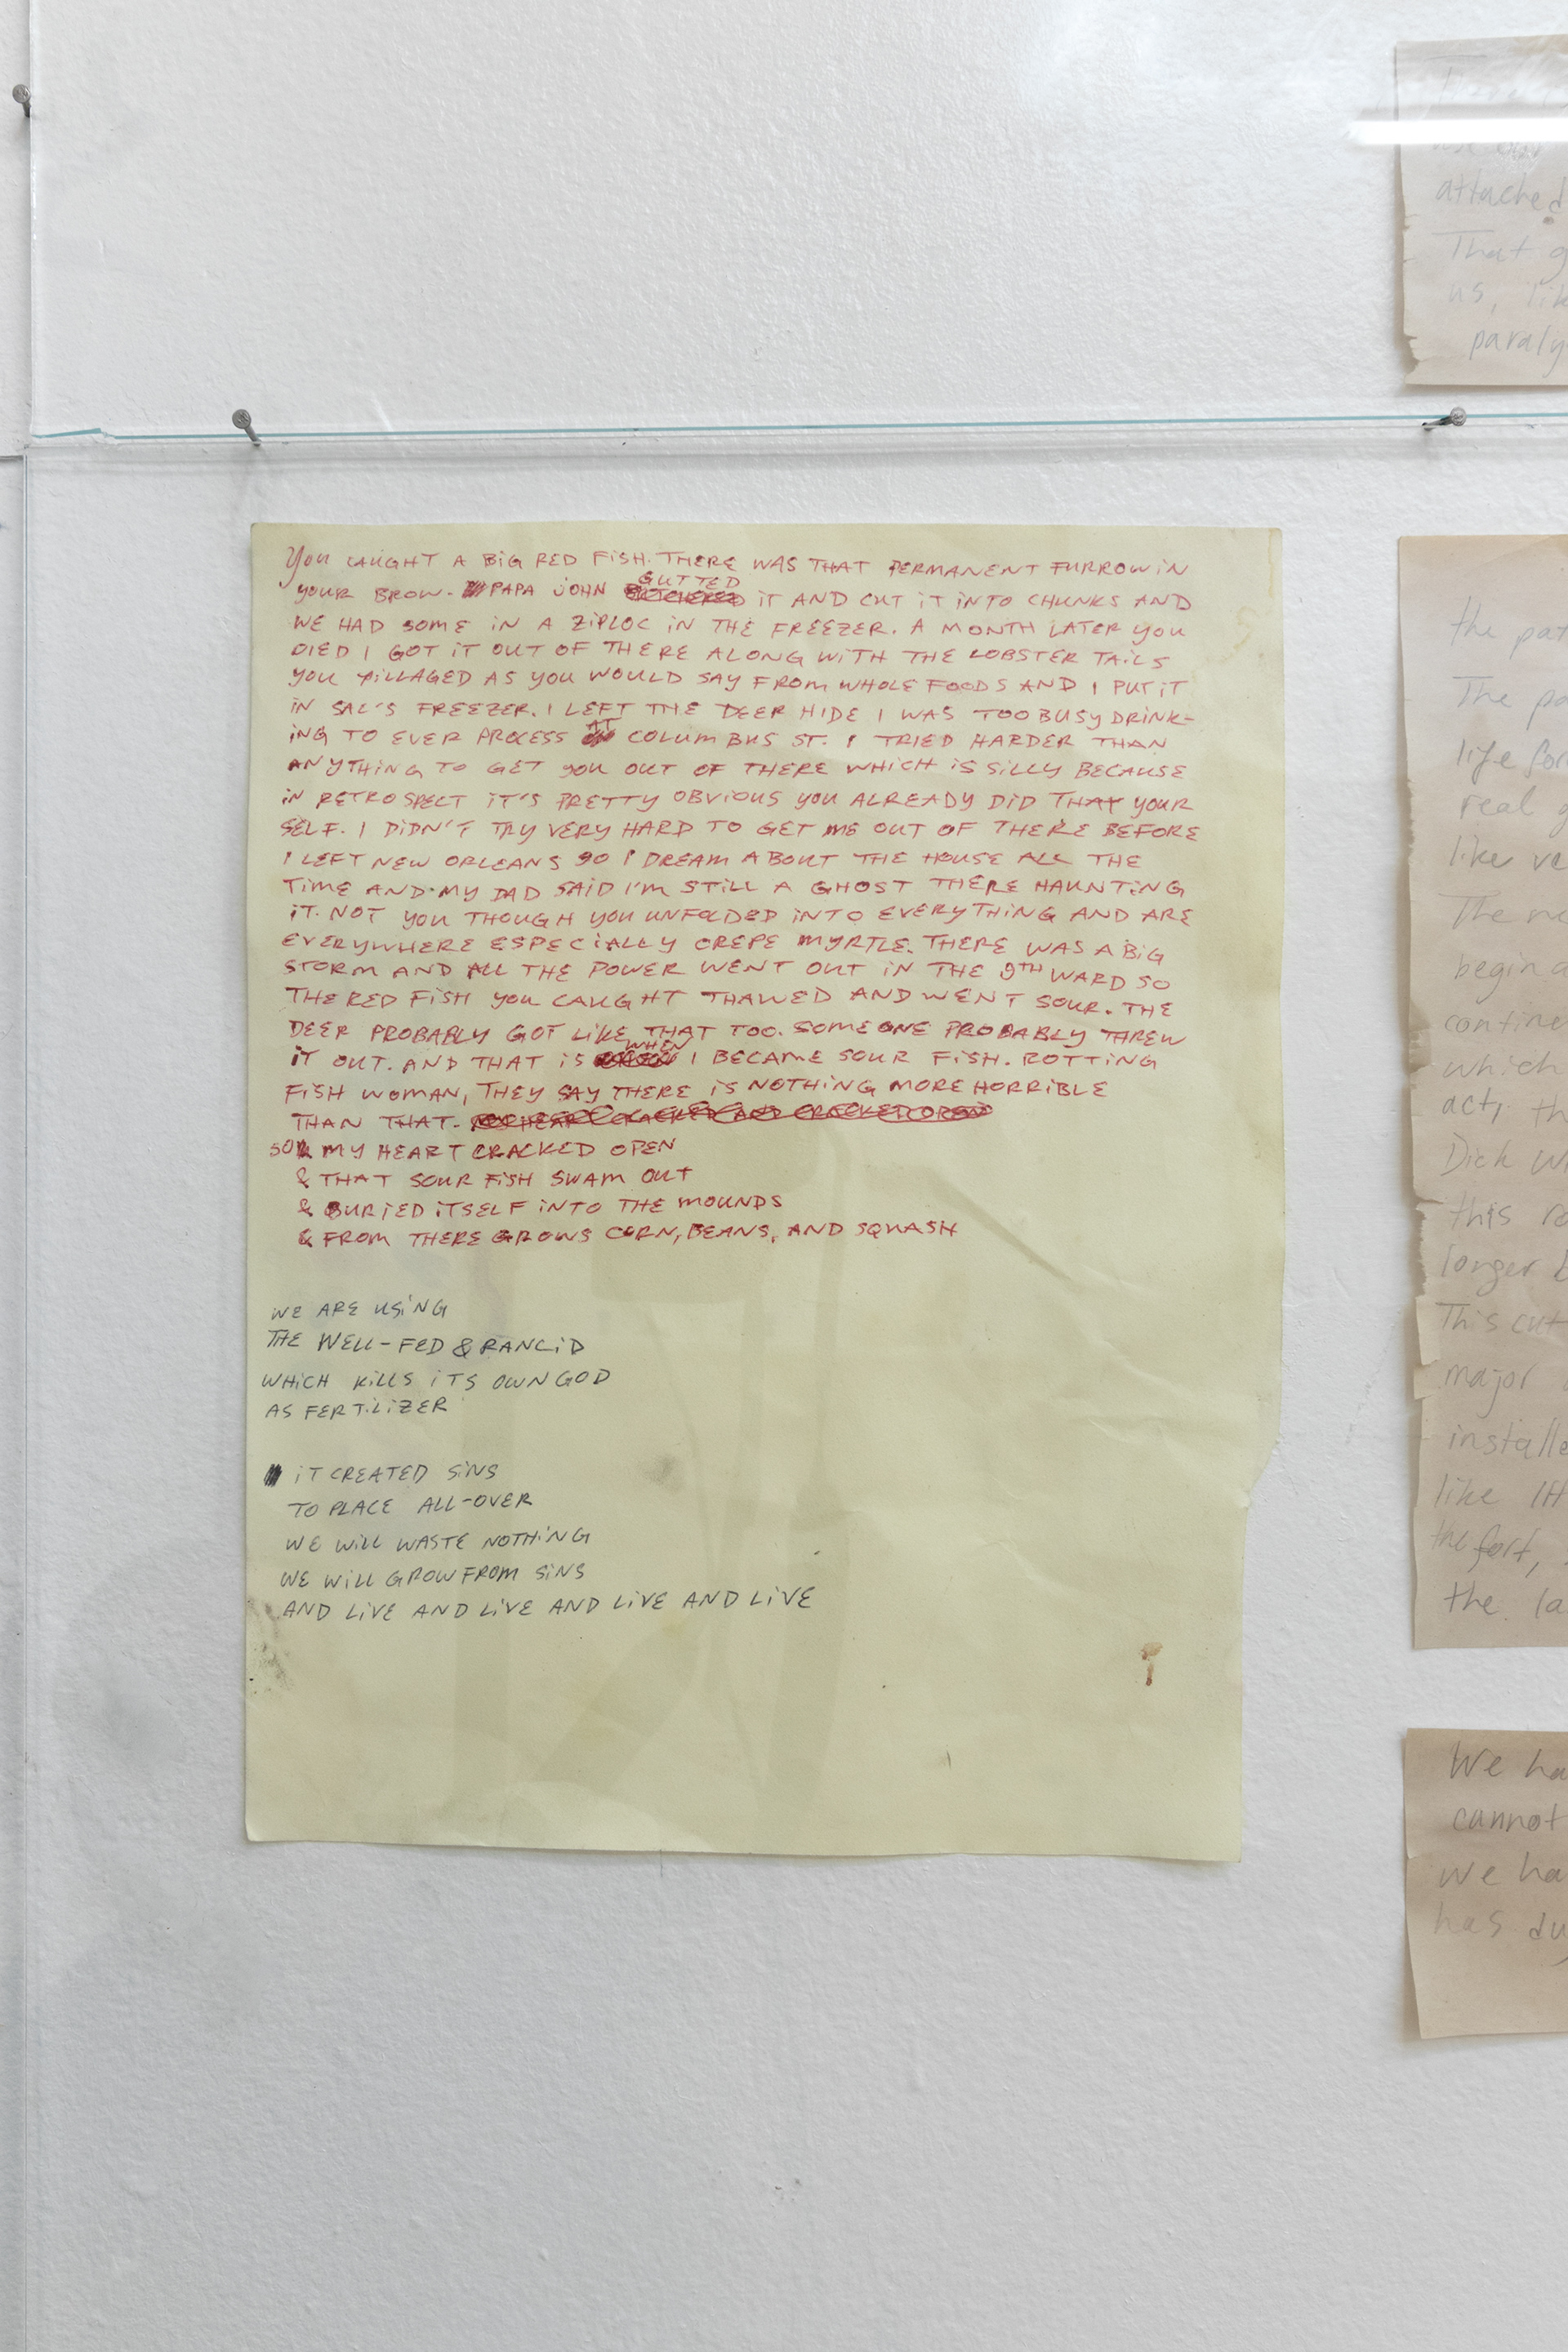 YOU CAUGHT A BIG RED FISH. THERE WAS THAT PERMANENT FURROW IN
YOUR BROW. PAPA JOHN GUTTED IT AND CUT IT INTO CHUNKS AND
WE HAD SOME IN A ZIPLOC IN THE FREEZER. A MONTH LATER YOU
DIED I GOT IT OUT OF THERE ALONG WITH THE LOBSTER TAILS
YOU PILLAGED AS YOU WOULD SAY FROM WHOLE FOODS AND I PUT IT
IN SAL'S FREEZER. I LEFT THE DEER HIDE I WAS TOO BUSY DRINK-
ING TO EVER PROCESS AT COLUMBUS ST. I TRIED HARDER THAN
ANYTHING TO GET YOU OUT OF THERE WHICH IS SILLY BECAUSE
IN RETROSPECT IT'S PRETTY OBVIOUS YOU ALREADY DID THAT YOUR
SELF. I DIDN'T TRY VERY HARD TO GET ME OUT OF THERE BEFORE
I LEFT NEW ORLEANS SO I DREAM ABOUT THE HOUSE ALL THE
TIME AND MY DAD SAID I'M STILL A GHOST THERE HAUNTING
IT. NOT YOU THOUGH YOU UNFOLDED INTO EVERYTHING AND ARE
EVERYWHERE ESPECIALLY CREPE MYRTLE. THERE WAS A BIG
STORM AND ALL THE POWER WENT OUT IN THE 9TH WARD SO
THE RED FISH YOU CAUGHT THAWED AND WENT SOUR. THE
DEER PROBABLY GOT LIKE THAT TOO. SOMEONE PROBABLY THREW
IT OUT. AND THAT IS WHEN I BECAME SOUR FISH. ROTTING
FISH WOMAN, THEY SAY THERE IS NOTHING MORE HORRIBLE
THAN THAT. MY HEART CRACKED AND CRACKED OPEN
SO MY HEART CRACKED OPEN
& THAT SOUR FISH SWAM OUT
& BURIED ITSELF INTO THE MOUNDS
& FROM THERE GROWS CORN, BEANS, AND SQUASH
WE ARE USING
THE WELL-FED & RANCID
WHICH KILLS ITS OWN GOD
AS FERTILIZER
IT CREATED SINS
TO PLACE ALL-OVER
WE WILL WASTE NOTHING
WE WILL GROW FROM SINS
AND LIVE AND LIVE AND LIVE AND LIVE
attached
That
us,
the
The
life
real
like
The
which
act,
Dick
this
longer
This cut
major
like
the fort,
the
We
cannot
we
has